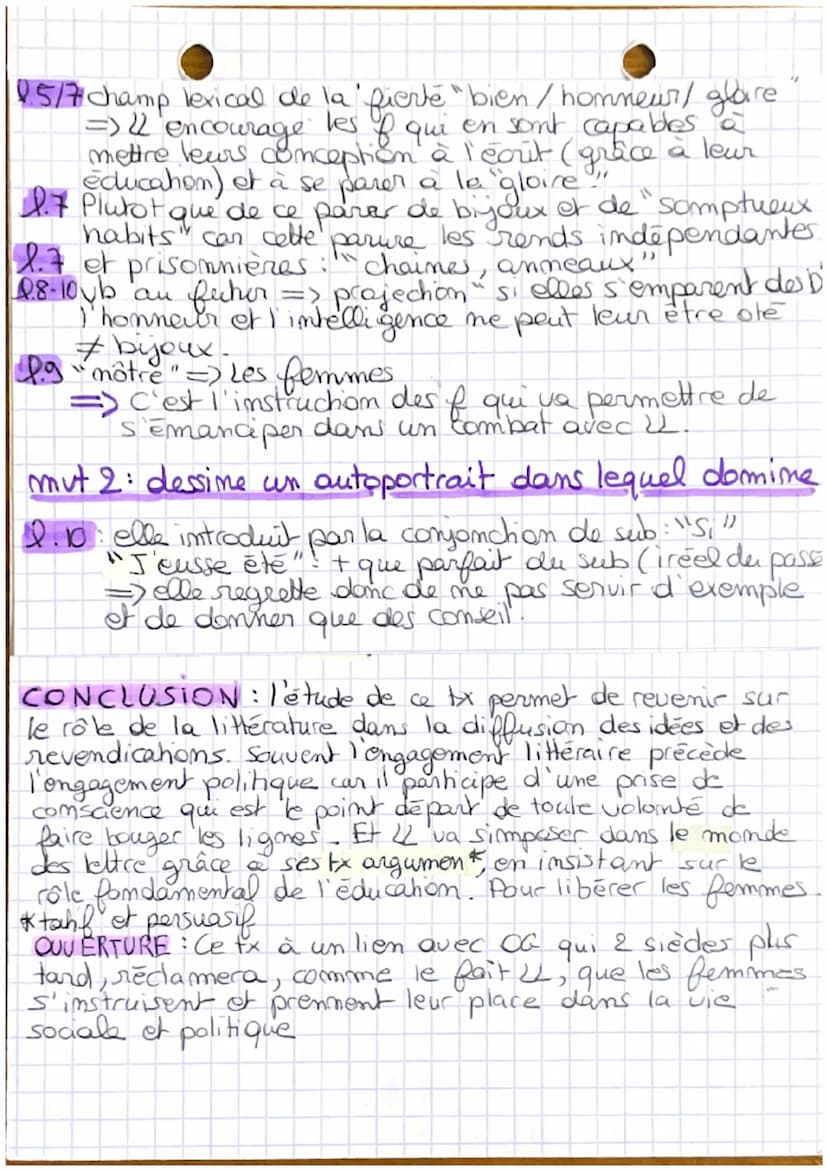 l.5/7 champ lexical de la fierté "bien/honneur/gloire"
=> LL encourage les f qui en sont capables à
mettre leurs conception à l'écrit (grâce à leur
éducation) et à se parer à la "gloire".
l.7 Plutot que de ce parer de bijoux et de "somptueux
habits" car cette parure les rends indépendantes
l.7 et prisonnières : "chaines, anneaux"
l.8-10 vb au futur => projection "si elles s'emparent des b
l'honneur et l'intelligence ne peut leur être oté
≠ bijoux.
l.9 "nôtre" => Les femmes
=> C'est l'instruction des f qui va permettre de
s'émanciper dans un combat avec LL.
mvt 2 : dessine un autoportrait dans lequel domine
l.10 : elle introduit par la conjonction de sub : "Si"
"J'eusse été" : + que parfait du sub (iréel du passé
=> elle regrette donc de ne pas servir d'exemple
et de donner que des conseil.
CONCLUSION : l'étude de ce tx permet de revenir sur
le rôle de la littérature dans la diffusion des idées et des
revendications. Souvent l'engagement littéraire précède
l'engagement politique car il participe d'une prise de
conscience qui est le point départ de toute volonté de
faire bouger les lignes. Et LL va simposer dans le monde
des lettre grâce à ses tx argumen*, en insistant sur le
rôle fondamental de l'éducation. Pour libérer les femmes.
*tatif et persuasif
OUVERTURE : Ce tx à un lien avec OG qui 2 siècles plus
tard, réclamera, comme le fait LL, que les femmes
s'instruisent et prennent leur place dans la vie
sociale et politique